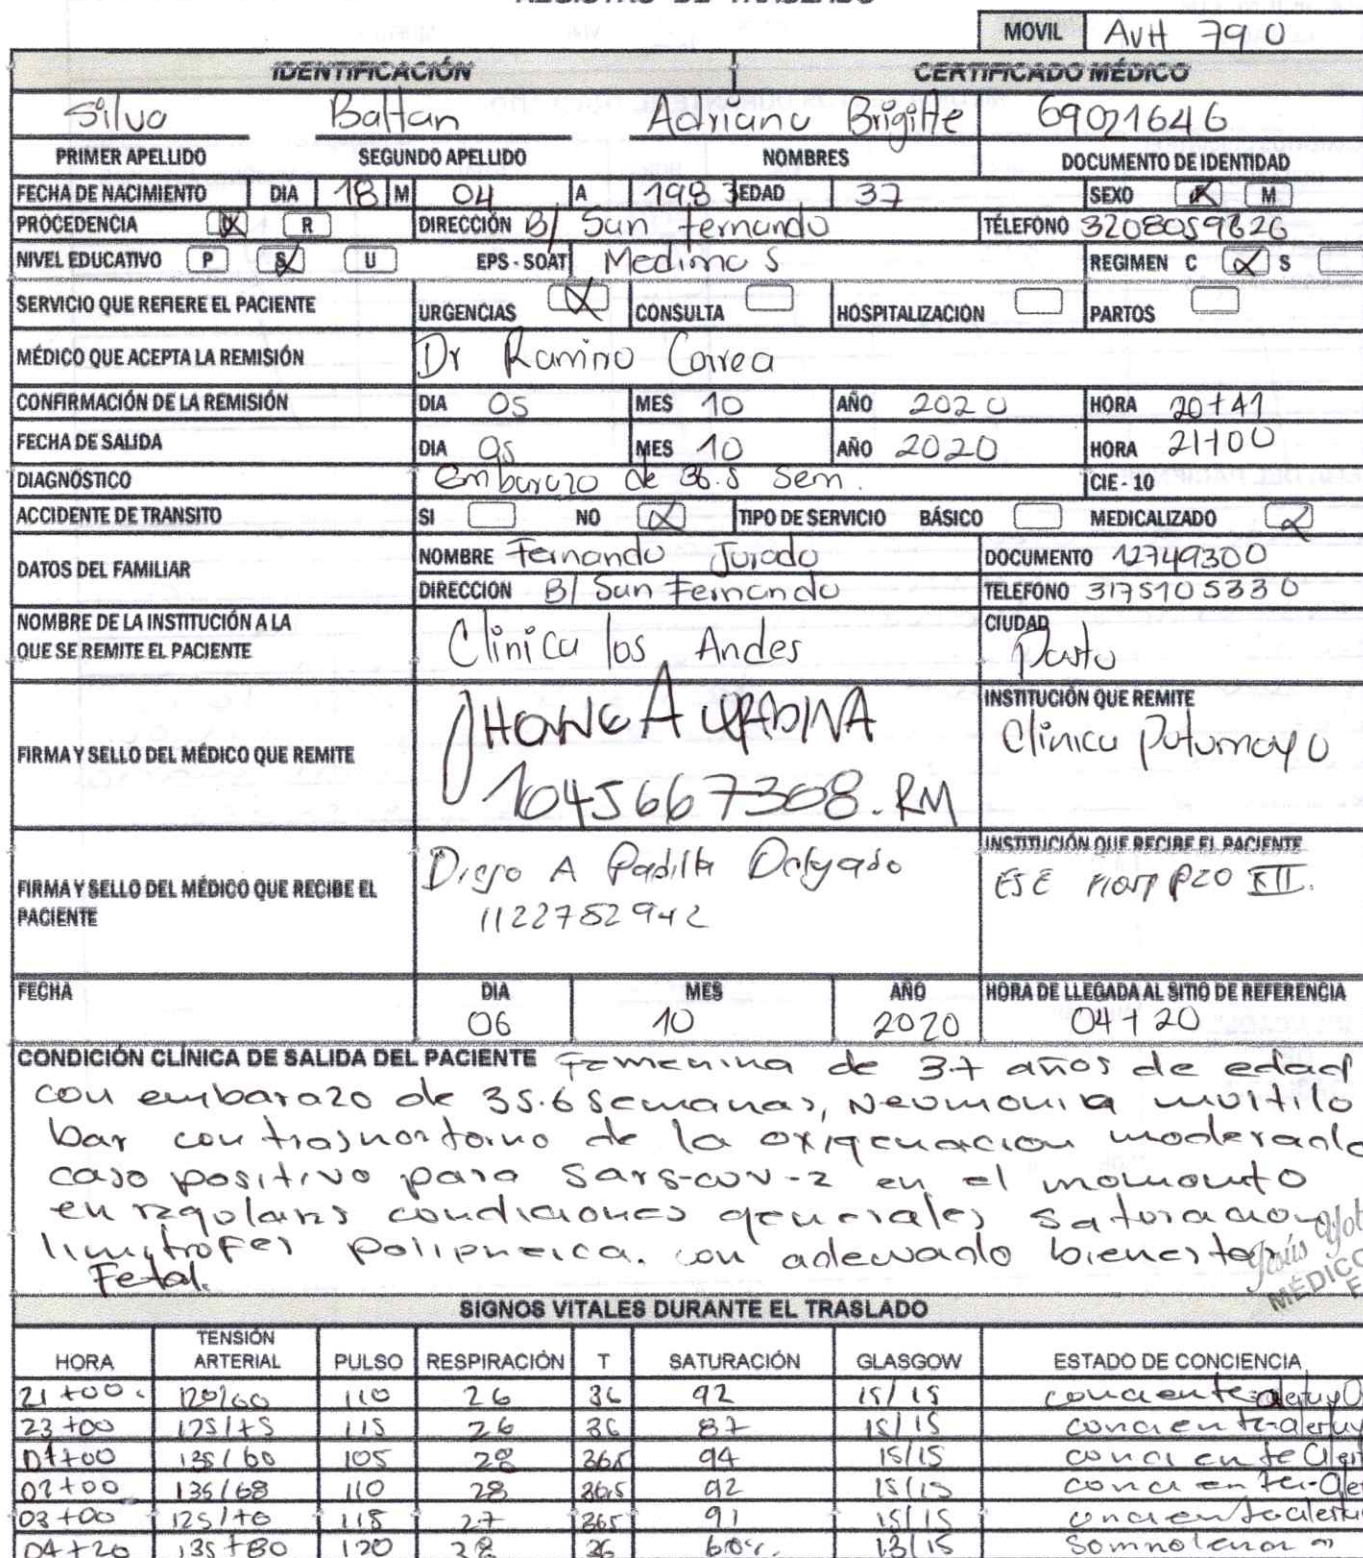 REGISTRO DE TRASLADO
MOVIL AVH 790
IDENTIFICACIÓN CERTIFICADO MÉDICO
Silva Baltan Adriana Brigitte 69021646
PRIMER APELLIDO SEGUNDO APELLIDO NOMBRES DOCUMENTO DE IDENTIDAD
FECHA DE NACIMIENTO DIA 18 M 04 A 1983 EDAD 37 SEXO X M
PROCEDENCIA X R DIRECCIÓN B/ San Fernando TÉLEFONO 3208059626
NIVEL EDUCATIVO P S U EPS - SOAT Medimas REGIMEN C X S
SERVICIO QUE REFIERE EL PACIENTE URGENCIAS X CONSULTA HOSPITALIZACION PARTOS
MÉDICO QUE ACEPTA LA REMISIÓN Dr Ramiro Correa
CONFIRMACIÓN DE LA REMISIÓN DIA 05 MES 10 AÑO 2020 HORA 20+41
FECHA DE SALIDA DIA 05 MES 10 AÑO 2020 HORA 21+00
DIAGNÓSTICO Embarazo de 36.5 Sem. CIE - 10
ACCIDENTE DE TRANSITO SI NO X TIPO DE SERVICIO BÁSICO MEDICALIZADO X
DATOS DEL FAMILIAR NOMBRE Fernando Jurado DOCUMENTO 12749300
DIRECCION B/ San Fernando TELEFONO 3175105330
NOMBRE DE LA INSTITUCIÓN A LA QUE SE REMITE EL PACIENTE Clinica los Andes CIUDAD Pasto
FIRMA Y SELLO DEL MÉDICO QUE REMITE A URBINA INSTITUCIÓN QUE REMITE Clinica Putumayo
1045667308. RM
FIRMA Y SELLO DEL MÉDICO QUE RECIBE EL PACIENTE Diego A Padilla Delgado INSTITUCIÓN QUE RECIBE EL PACIENTE
1122782942 ESE Hosp PIO XII.
FECHA DIA MES AÑO HORA DE LLEGADA AL SITIO DE REFERENCIA
06 10 2020 04+20
CONDICIÓN CLÍNICA DE SALIDA DEL PACIENTE Femenina de 37 años de edad
con embarazo de 35.6 semanas, Neumonia multilo
bar con trasnortorno de la oxigenacion moderado
caso positivo para Sars-cov-2 en el momento
en regulares condiciones generales saturacion
limitrofes polipneica. con adecuado bienestar
Fetal.
Jesús
MÉDICO
SIGNOS VITALES DURANTE EL TRASLADO
HORA TENSIÓN ARTERIAL PULSO RESPIRACIÓN T SATURACIÓN GLASGOW ESTADO DE CONCIENCIA
21+00 120/60 110 26 36 92 15/15 conciente-alertuy
23+00 125/75 115 26 36 87 15/15 conciente-alertuy
01+00 135/60 105 28 365 94 15/15 conciente
02+00 135/68 110 28 36.5 92 15/15 conciente-
03+00 125/70 118 27 365 91 15/15
04+20 135+80 120 38 36 60%. 13/15 Somnolencia